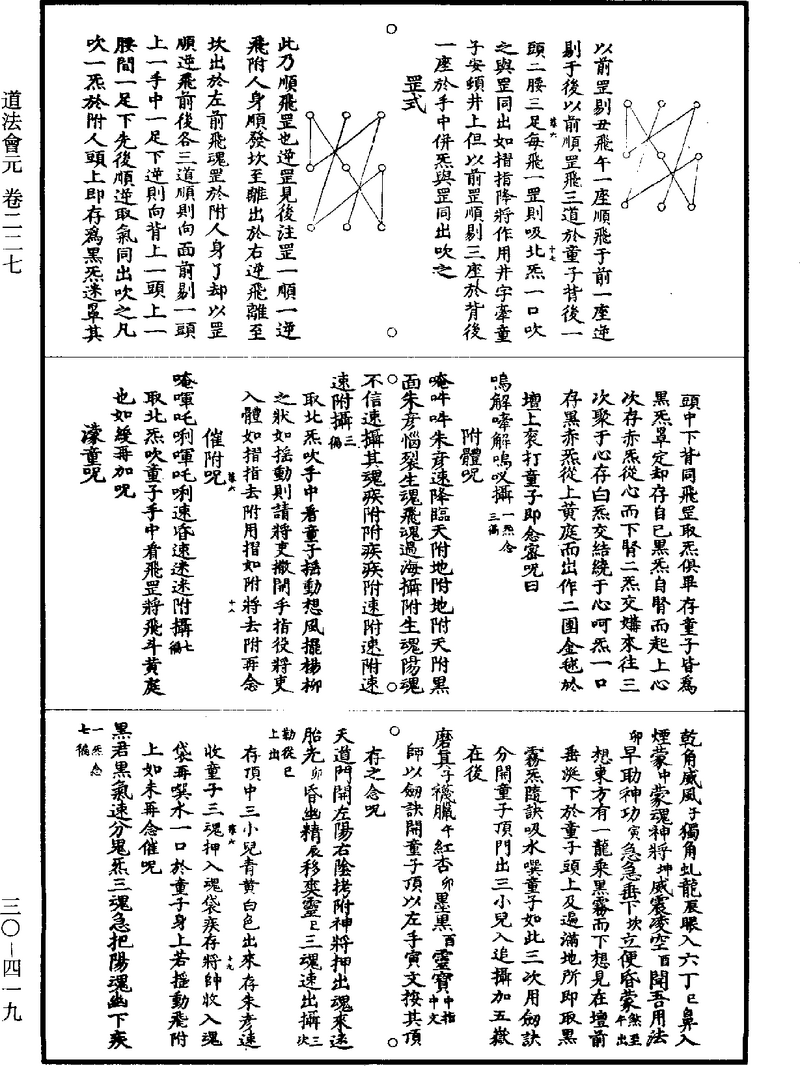 道法會元 卷二二七
以前罡剔丑飛午一座順飛于前一座逆
剔于後以前順罡飛三道於童子背後一
頭二腰三足每飛一罡則吸北炁一口吹
之與罡同出如摺指降將作用井字牽童
子安頓井上但以前罡順剔三座於背後
一座於手中併炁與罡同出吹之
罡式
此乃順飛罡也逆罡見後注罡一順一逆
飛附人身順發坎至離出於右逆飛離至
坎出於左前飛魂罡於附人身了却以罡
順逆飛前後各三道順則向面前剔一頭
上一手中一足下逆則向背上一頭上一
腰間一足下先後順逆取氣同出吹之凡
吹一炁於附人頭上即存爲黑炁迷罩其
頭中下背同飛罡取炁俱畢存童子皆爲
黑炁罩定却存自己黑炁自腎而起上心
次存赤炁從心而下腎二炁交媾來往三
次聚于心存白炁交結繞于心呵炁一口
存黑赤炁從上黄庭而出作二團金毬於
壇上衮打童子即念密呪曰
嗚解嗱解嗚㕧攝一炁念三徧
附體呪
唵吽吽朱彦速降臨天附地附地附天附黑
面朱彦惱裂生魂飛魂過海攝附生魂陽魂
不信速攝其魂疾附附疾疾附速附速附速
速附攝三徧
取北炁吹手中看童子揺動想風擺楊柳
之狀如揺動則請將吏撒開手指役將吏
入體如摺指去附用摺如附將去附再念
催附呪
唵㖷吒唎㖷吒唎速昏速迷速附攝七徧
取北炁吹童子手中看飛罡將飛斗黄庭
也如緩再加呪
濛童呪
乾角威風子獨角虬龍辰眼入六丁巳鼻入
煙蒙中蒙魂神將坤威震凌空酉聞吾用法
卯早助神功寅急急垂下坎立便昏蒙然至午出
想東方有一龍乘黑霧而下想見在壇前
垂涎下於童子頭上及遍滿地所即取黑
霧炁隨訣吸水噀童子如此三次用劔訣
分開童子頂門出三小兒入追攝加五嶽
在後
磨真子襪臟午紅杏卯墨黒酉靈寶中指中文
師以劔訣開童子頂以左手寅文按其頂
存之念呪
天道門開左陽右陰拷附神將押出魂來送
胎光卯昏幽精辰移爽靈巳三魂速出攝三次
勒從巳上出
存頂中三小兒青黄白色出來存朱彦速
收童子三魂押入魂袋疾存將帥收入魂
袋再噀水一口於童子身上若揺動飛附
上如未再念催呪
黒君黒氣速分鬼炁三魂急把陽魂幽下疾
一炁念七徧
三〇-四一九